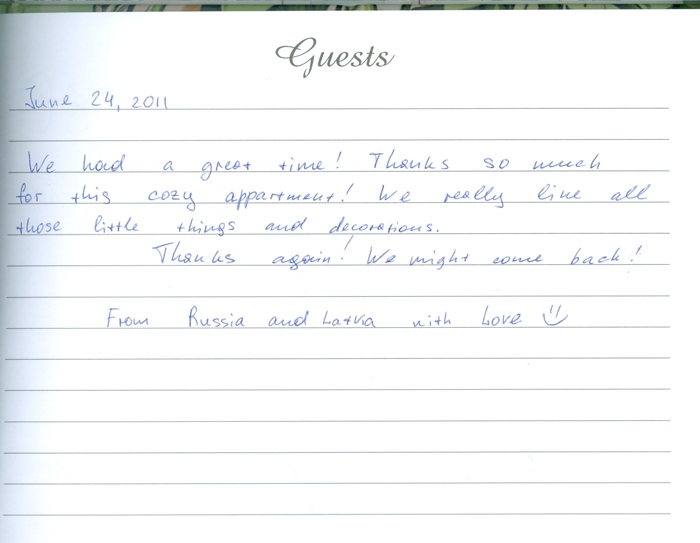 Guests
June 24, 2011
We had a great time! Thanks so much
for this cozy appartment! We really like all
those little things and decorations.
Thanks again! We might come back!
From Russia and Latvia with Love